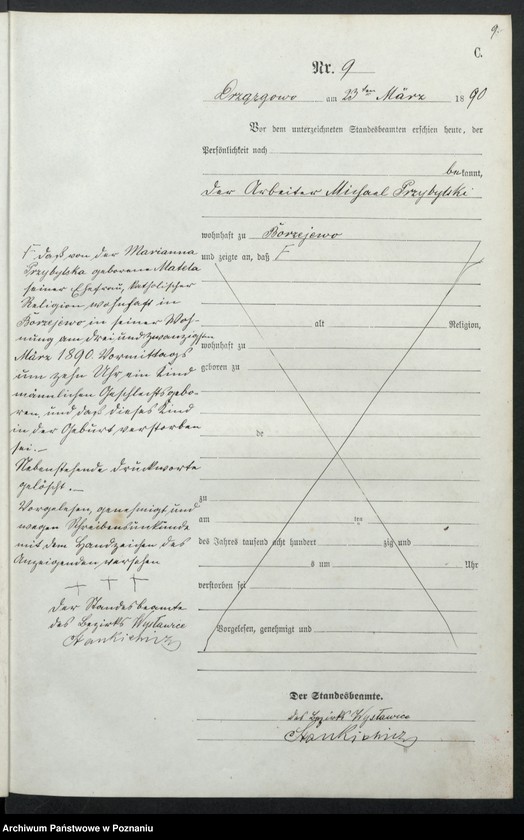 9.
C.
Nr. 9
am 23ten März 18 90
Vor dem unterzeichneten Standesbeamten erschien heute, der
Persönlichkeit nach
bekannt,
der Arbeiter Michael Przybylski
wohnhaft zu Borzejewo
und zeigte an, daß F
alt Religion,
wohnhaft zu
geboren zu
de
zu
am ten
des Jahres tausend acht hundert zig und
s um Uhr
verstorben sei
Vorgelesen, genehmigt und
Der Standesbeamte.
des Bezirks Wysławice
Stankiewicz
F daß von der Marianna
Przybylska geborene Matela
seiner Ehefrau, katholischer
Religion wohnhaft in
Borzejewo in seiner Woh-
nung am drei und zwanzigsten
März 1890 Vormittags
um zehn Uhr ein Kind
männlichen Geschlechts gebo-
ren, und daß dieses Kind
in der Geburt verstorben
sei.-
Nebenstehende Druckworte
gelöscht.-
Vorgelesen, genehmigt und
wegen Schreibensunkunde
mit dem Handzeichen des
Anzeigenden versehen
+ + +
Der Standesbeamte
des Bezirks Wysławice
Stankiewicz
Archiwum Państwowe w Poznaniu